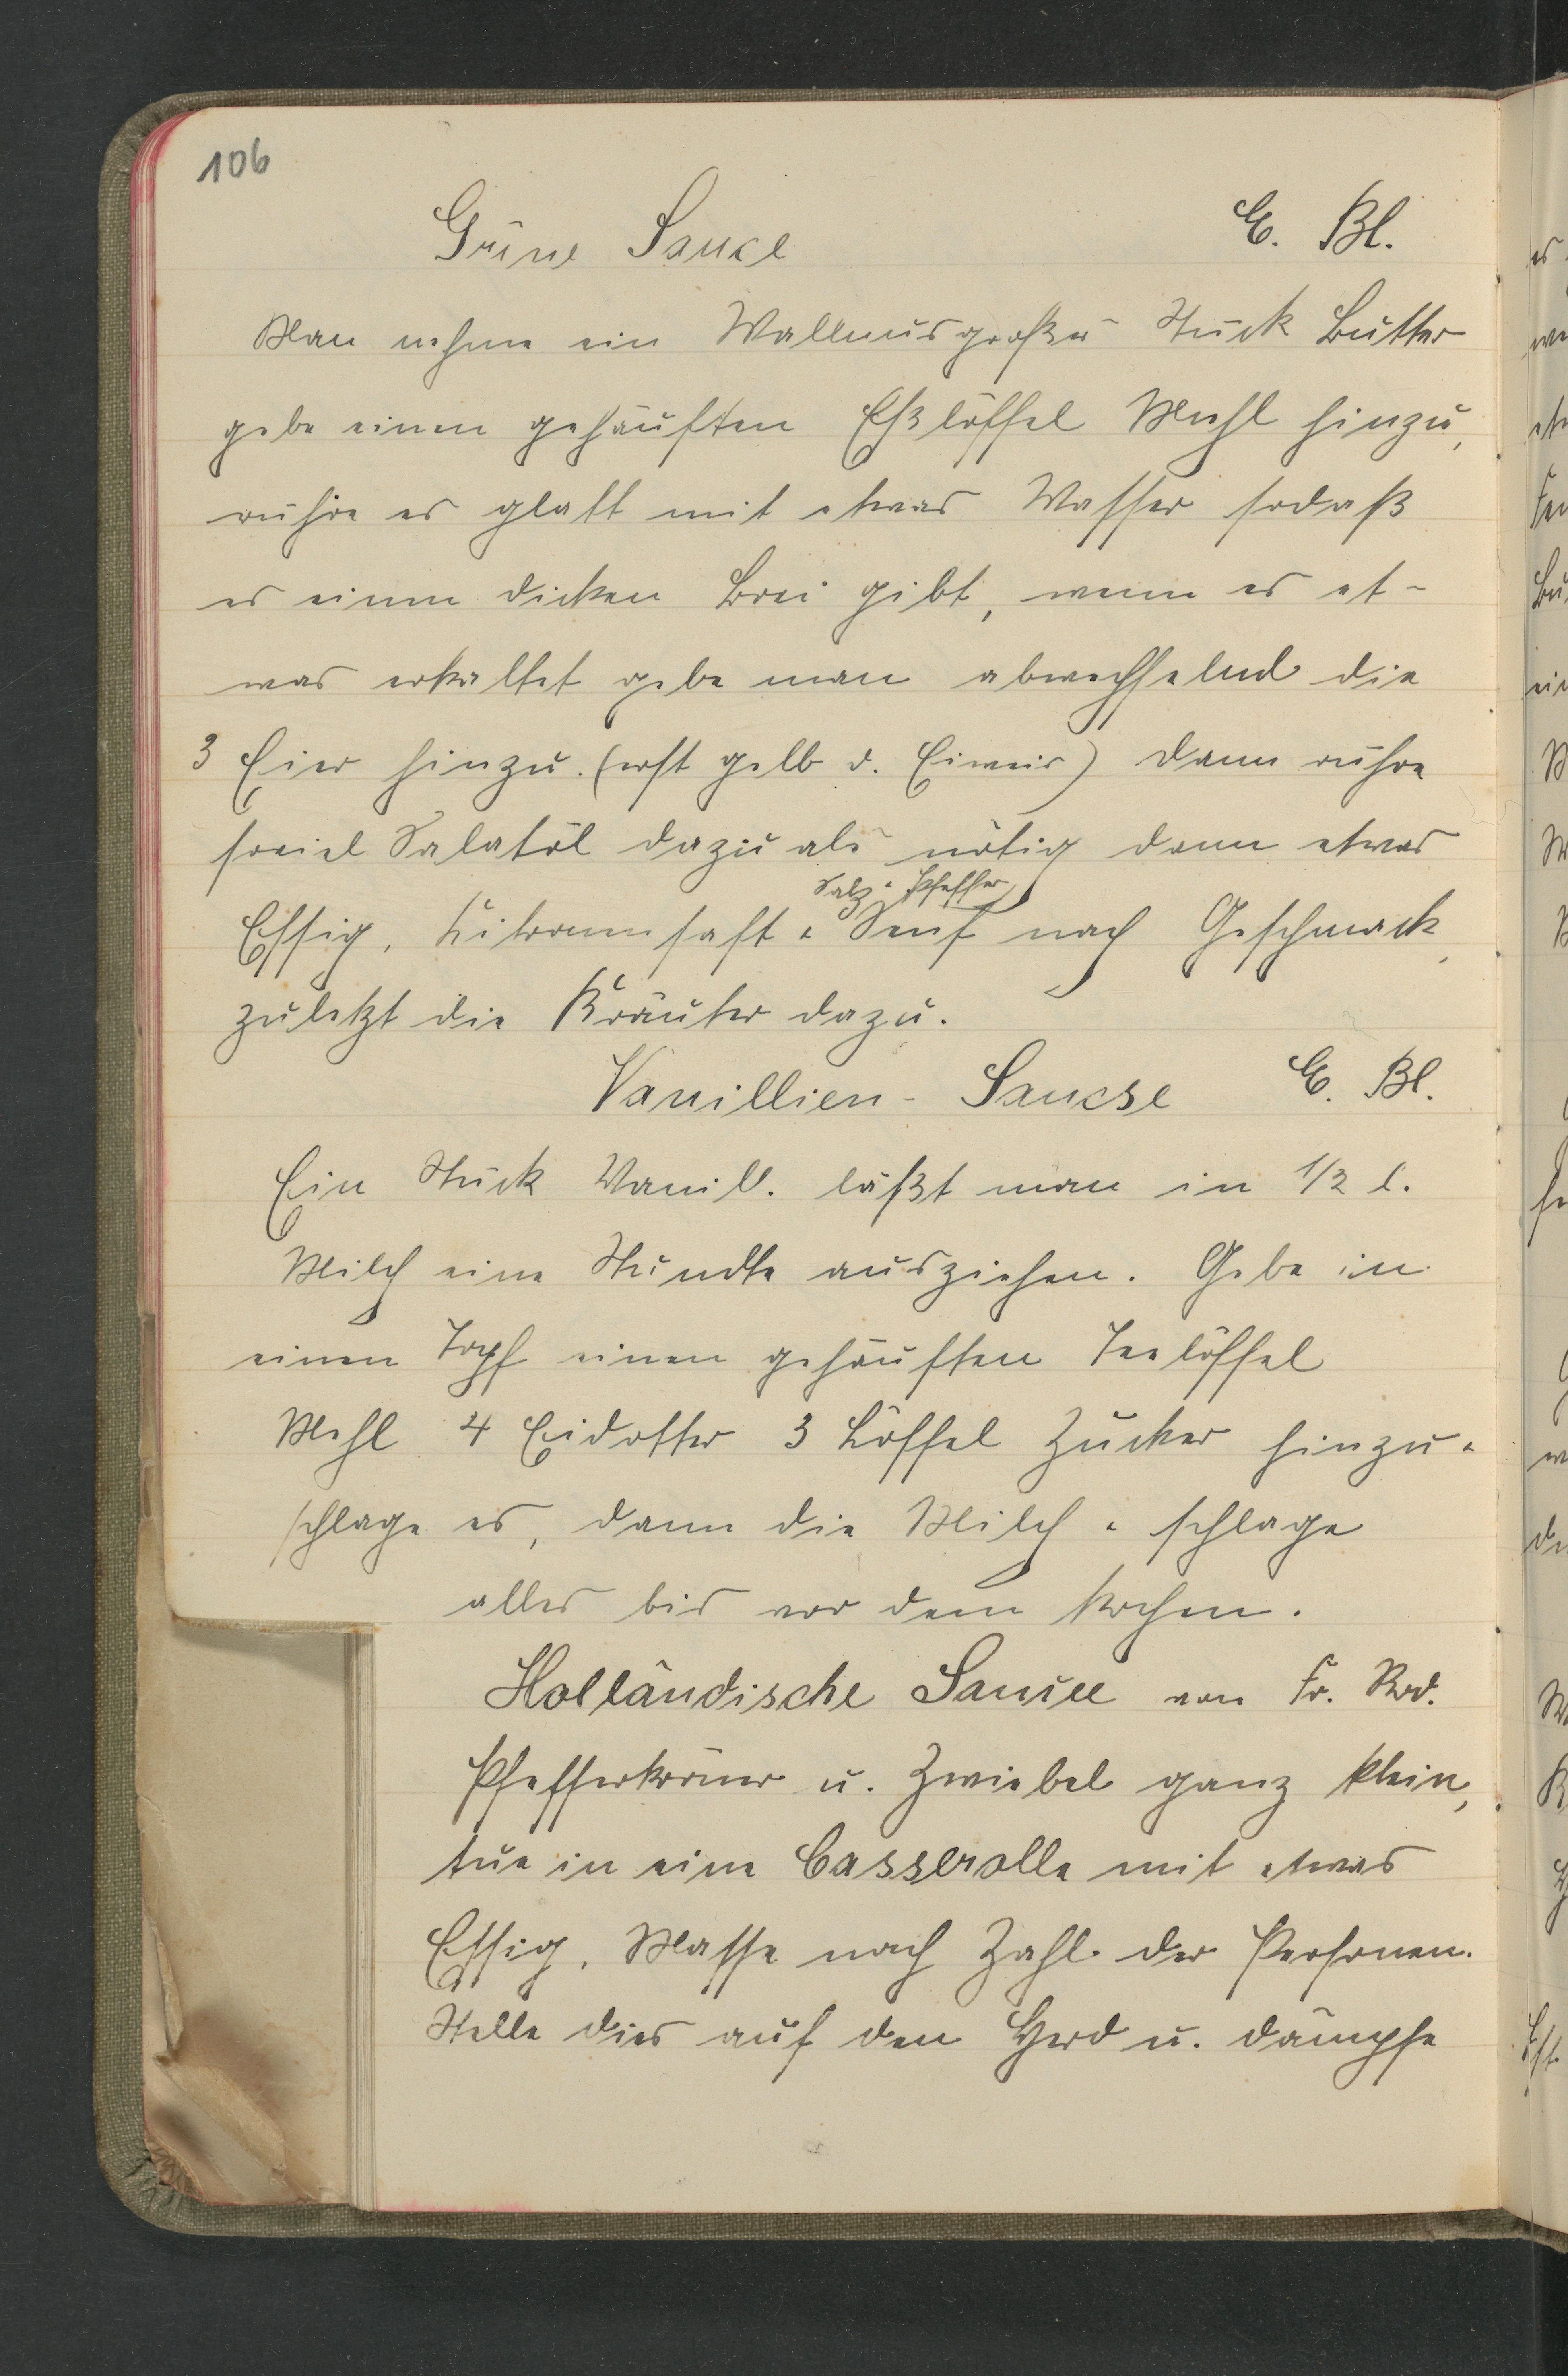 106
Grüne Sauce E. Bl.
Man nehme ein Wallnusgroßes Stück Butter
gebe einen gehäuften Eßlöffel Mehl hinzu,
rühre es glatt mit etwas Wasser sodaß
es einen dicken Brei gibt, wenn es et-
was erkaltet gebe man abwechselnd die
3 Eier hinzu. (erst gelb d. Eiweis) dann rühre
soviel Salatöl dazu als nötig dann etwas
Salz u. Pfeffer
Essig, Zitronensaft u Senf nach Geschmack,
zuletzt die Kräuter dazu.
Vanillien- Saucse E. Bl.
Ein Stück Vanill. läßt man in 1/2 l.
Milch eine Stundte ausziehen. Gebe in
einen Topf einen gehäuften Teelöffel
Mehl 4 Eidotter 3 Löffel Zucker hinzu u
schlage es, dann die Milch u schlage
alles bis vor dem Kochen.
Holländische Sauce von Fr. Rod.
Pfefferkörner u. Zwiebel ganz klein,
tue in eine Casserolle mit etwas
Essig, Masse nach Zahl der Personen.
Stelle dies auf den Herd u. dämpfe